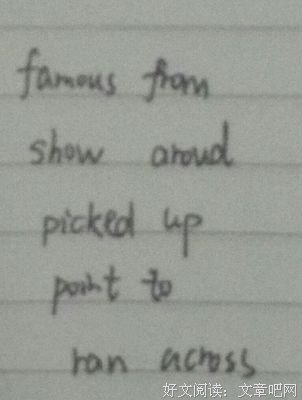 famous from
show aroud
picked up
point to
ran across
好文阅读：文章吧网